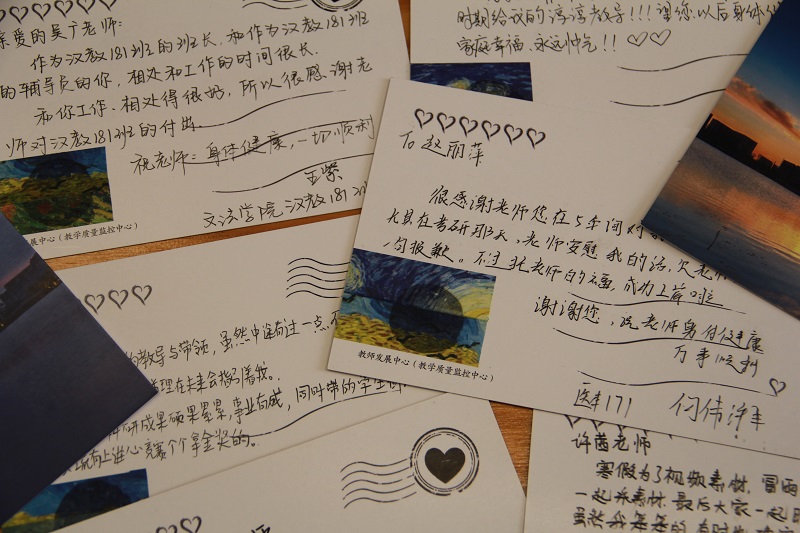 亲爱的吴广老师:
作为汉教181班的班长,和作为汉教181班
的辅导员的你,相处和工作的时间很长,
和你工作、相处得很好,所以很感谢老
师对汉教181班的付出
祝老师:身体健康,一切顺利
王紫
文法学院汉教181班
展中心(教学质量监控中心)
时期给我的淳淳教导!!!望您以后身体
家庭幸福,永远帅气!!
To 赵丽萍
很感谢老师您在5年间对
尤其在考研那天,老师安慰我的话,欠老师
一句抱歉。不过托老师的福,成功上岸啦
谢谢您,祝老师身体健康
万事顺利
医本171
教师发展中心(教学质量监控中心)
的教导与带领,虽然中途有过一点
道理在未来会指引着我。
研成果硕果累累,事业有成,同时带的学生
有上进心竞赛个个拿金奖的。
许茜老师
寒假为了视频素材,冒雨
一起杀素材 最后大家一起